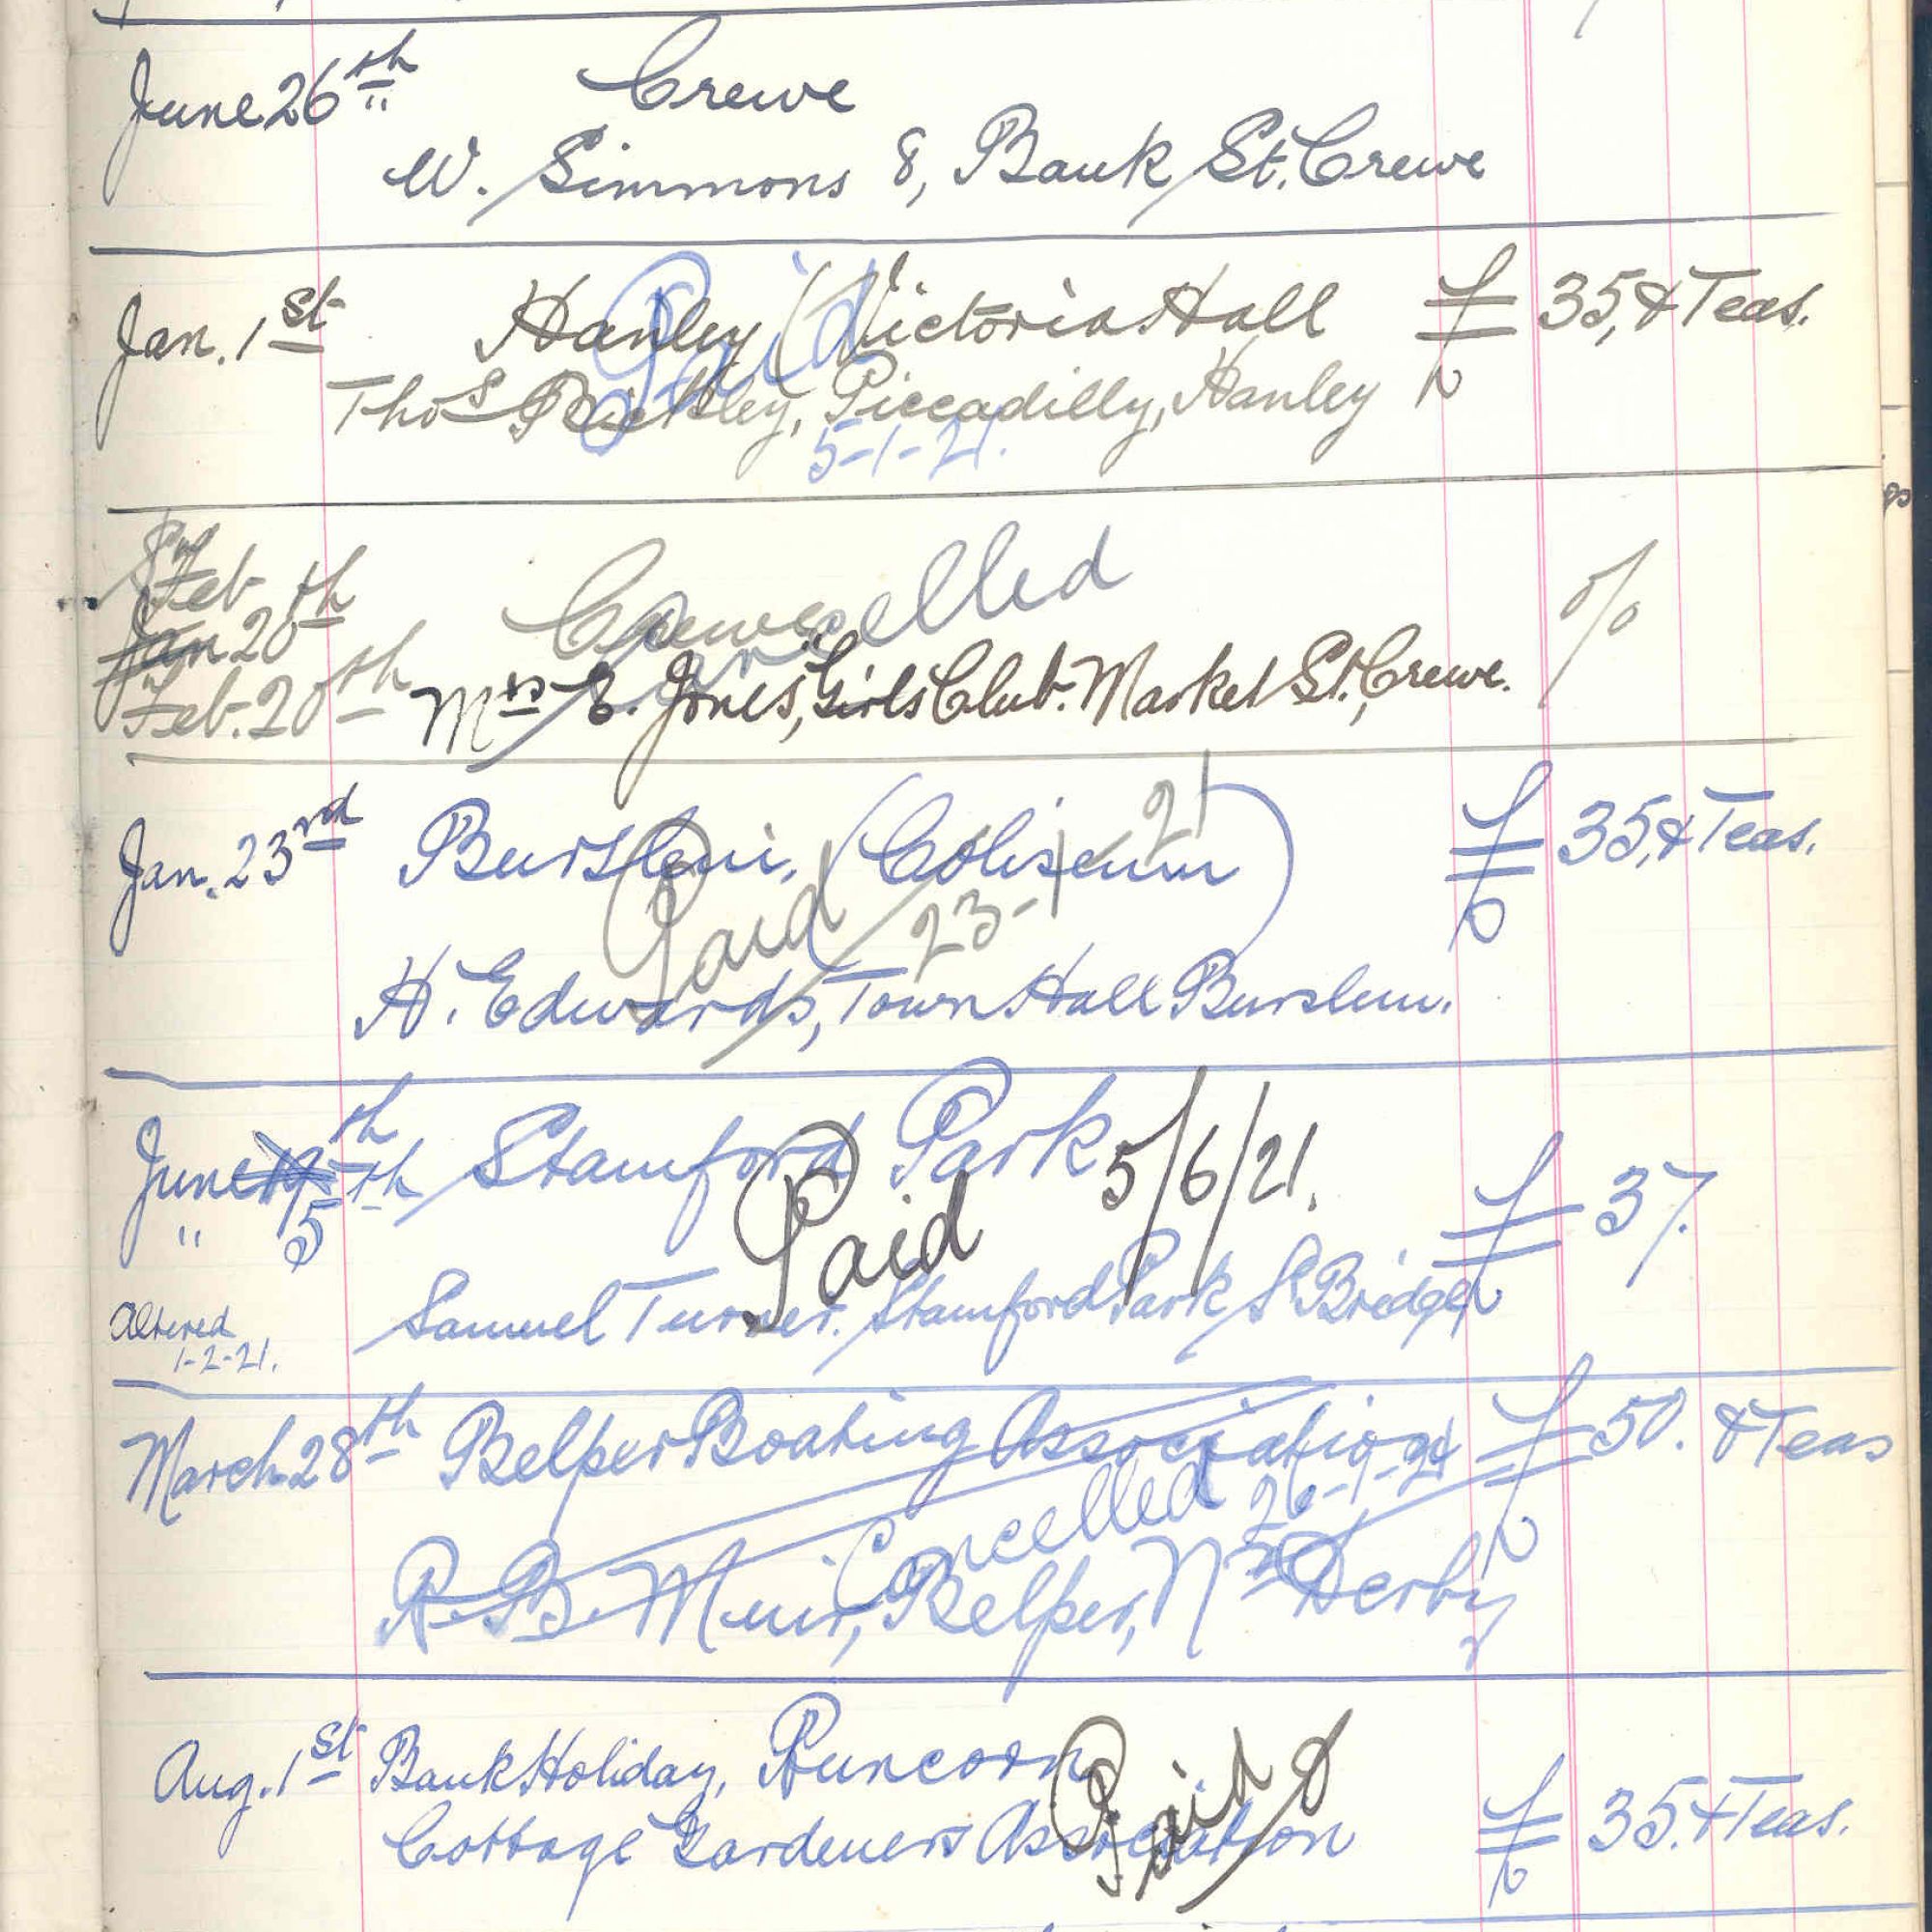 June 26th Crewe
W. Simmons 8, Bank St. Crewe
Jan. 1st Hanley (Victoria Hall £35, & Teas.
Paid
Thos Rickley, Piccadilly, Hanley
5-1-21.
Feb
Jan 20th Crewe
Cancelled
Feb. 20th Mrs E. Jones, Girls Club. Market St., Crewe.
Jan. 23rd Burslem, (Coliseum) £35, & Teas.
Paid 23-1-21
H. Edwards, Town Hall Burslem.
June 19th Stamford Park £37.
" 5th
Paid 5/6/21.
Altered
1-2-21.
Samuel Turner. Stamford Park S. Bridge
March 28th Belper Boating Association £50. & Teas
Cancelled 26-1-21
R. B. Muir, Belper, Nr Derby
Aug. 1st Bank Holiday, Runcorn
Paid
Cottage Gardeners Association £35. & Teas.